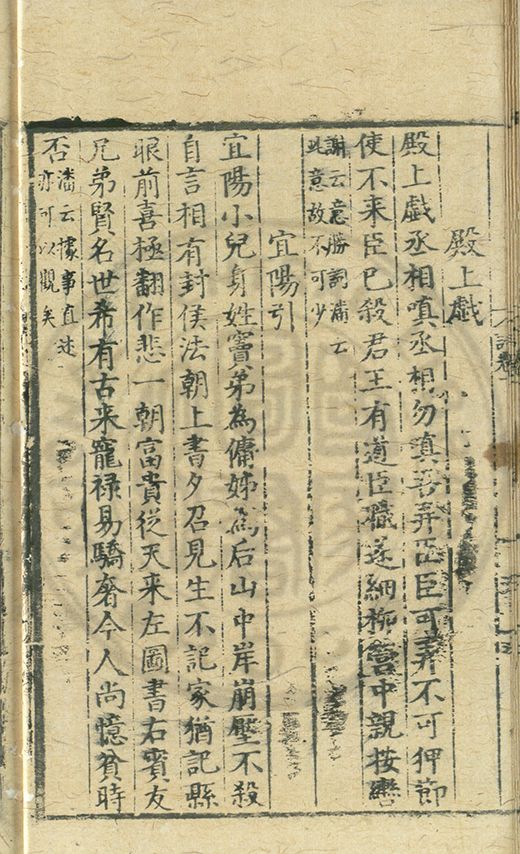 殿上戯
殿上戯丞相嗔丞相勿嗔吾弄臣臣可弄不可狎節
使不来臣已殺君王有道臣職遂細柳營中親按轡
謝云意勝詞潘云
此意故不可少
宜陽引
宜陽小兒身姓竇弟為傭姊為后山中岸崩壓不殺
自言相有封侯法朝上書夕召見生不記家猶記縣
眼前喜極翻作悲一朝富貴從天来左圖書右賓友
兄弟賢名世希有古来寵禄易驕奢今人尚憶貧時
否
潘云據事直述
亦可以觀矣